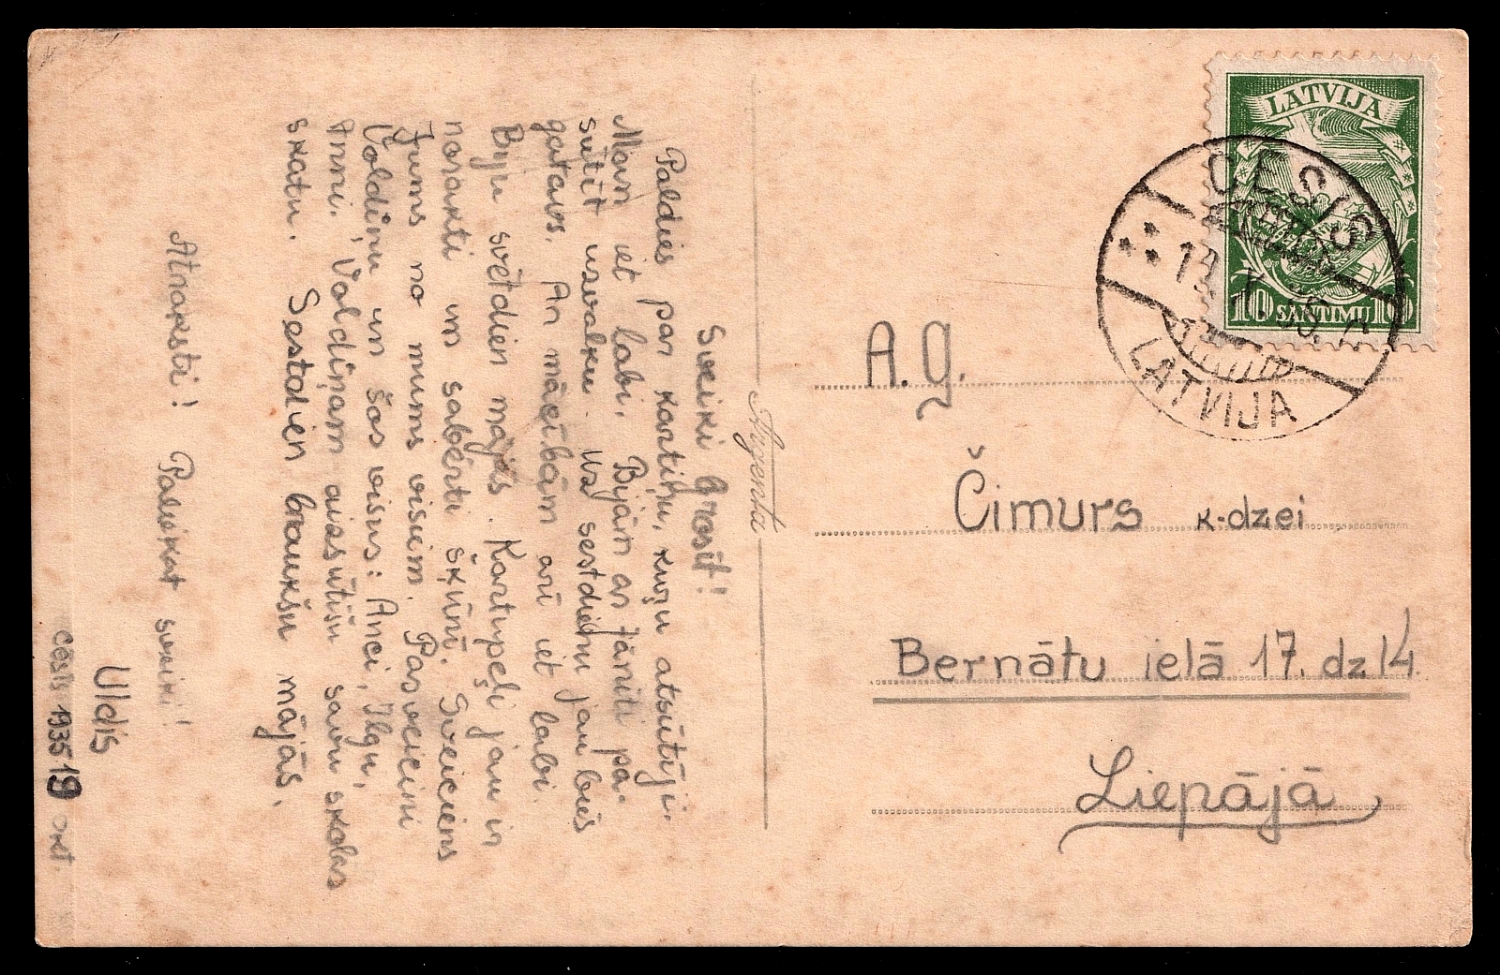 Sveiki Grosit!
Paldies par kartiņu, kuŗu atsūtīji.
Man iet labi. Bijām ar Jāmiti pa-
sūtīt uzvalku. Uz sestdienu jau būs
gatavs. An mācībām arī iet labi.
Biju svētdien mājās. Kartupeļi jau ir
norakti un sabērti šķūnī. Sveiciens
Jums no mums visiem. Pasveicini
Voldiņu un šos visus: Anci, Ilgu,
Anni. Voldiņam aizsūtīšu savu skolas
skatu. Sestdien braukšu mājās.
Atraksti! Paliekat sveiki!
Uldis
Cēsīs 1935 19 okt.
Argenta
LATVIJA
10 SANTIMU 10
CESIS
X
LATVIJA
A. G.
Čimurs k-dzei
Bernātu ielā 17. dz 14.
Liepājā